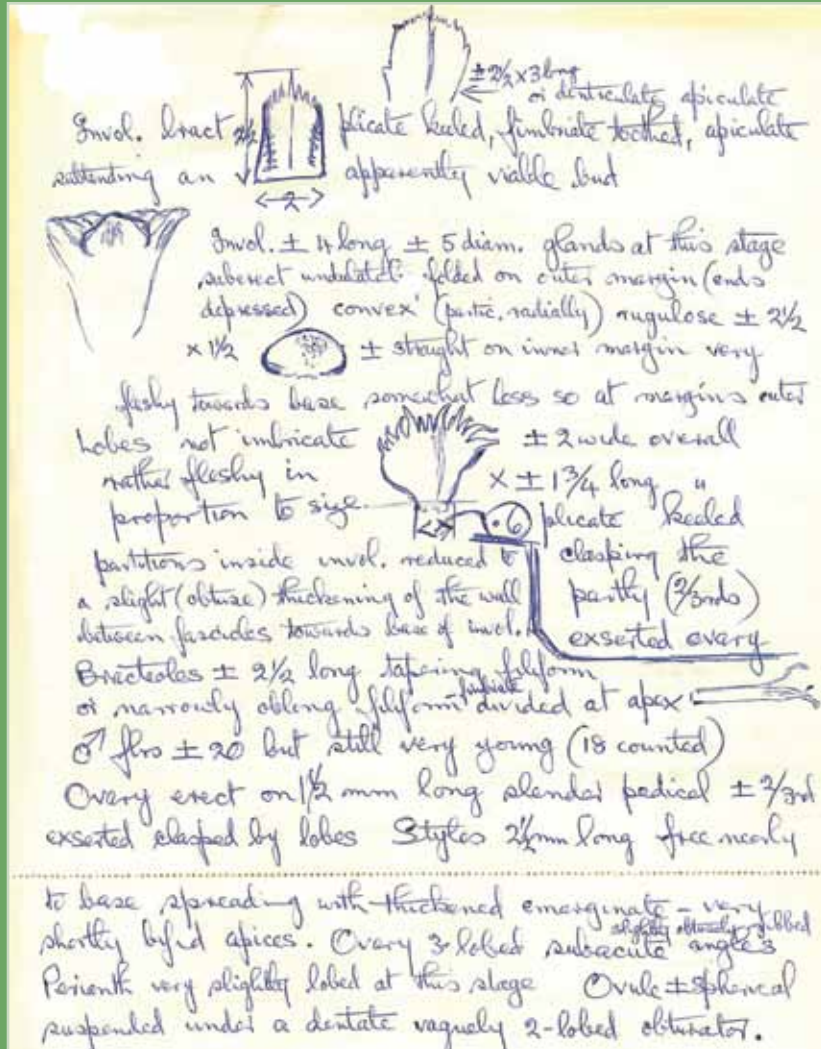 ± 2½ x 3 long
or denticulate apiculate
Invol. bract 2½ plicate keeled, fimbriate toothed, apiculate
subtending an apparently viable bud
2
Invol. ± 4 long ± 5 diam. glands at this stage
suberect undulate folded on outer margin (ends
depressed) convex (partic. radially) rugulose ± 2½
x 1½ ± straight on inner margin very
fleshy towards base somewhat less so at margins outer
Lobes not imbricate ± 2 wide overall
rather fleshy in x ± 1¾ long "
proportion to size. .6 plicate keeled
partitions inside invol. reduced to clasping the
a slight (obtuse) thickening of the wall partly (2/3rds)
between fascicles towards base of invol. exserted ovary
Bracteoles ± 2½ long tapering filiform
or narrowly oblong filiform-fimbriate divided at apex
♂ flrs ± 20 but still very young (18 counted)
Ovary erect on 1½ mm long slender pedical ± 2/3rd
exserted clasped by lobes Styles 2½mm long free nearly
to base spreading with thickened emarginate - very
shortly bifid apices. Ovary 3-lobed subacute slightly obtusely ribbed angles
Perianth very slightly lobed at this stage Ovule ± spherical
suspended under a dentate vaguely 2-lobed obturator.